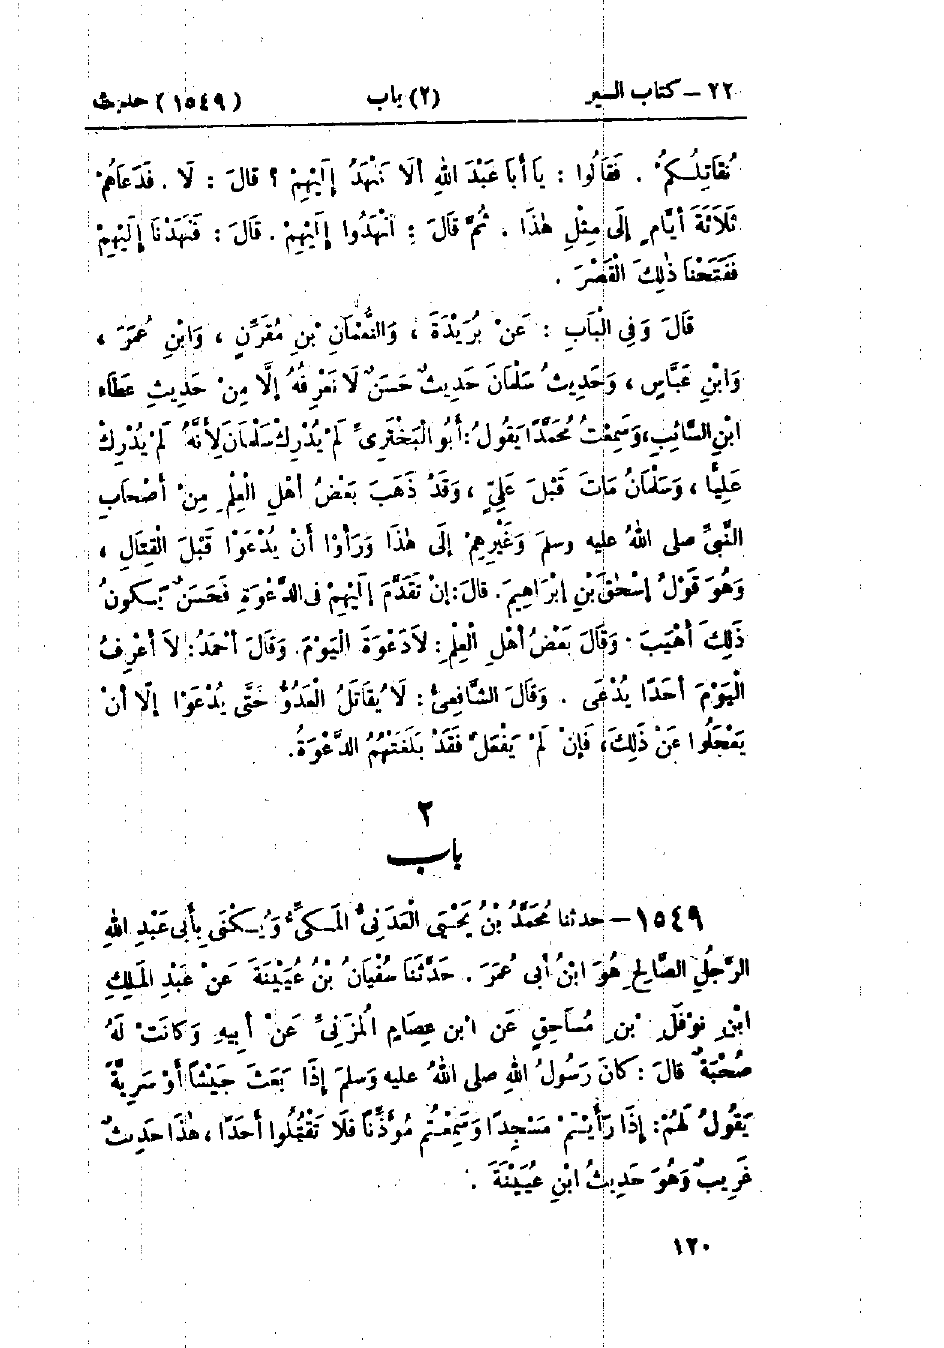 ٢٢ – كتاب السير (٢) باب (١٥٤٩) حديث
نُقَاتِلُكُمْ . فَقَالُوا : يَا أَبَا عَبْدَ اللهِ أَلَا نَنْهَدُ إِلَيْهِمْ ؟ قالَ : لَا . فَدَعَاهُمْ
ثَلَاثَةَ أَيَّامٍ إِلَى مِثْلِ هٰذَا . ثُمَّ قَالَ : انْهَدُوا إِلَيْهِمْ . قَالَ : فَنَهَدْنَا إِلَيْهِمْ
فَفَتَحْنَا ذٰلِكَ الْقَصْرَ .
قَالَ وَفِي الْبَابِ : عَنْ بُرَيْدَةَ ، وَالنُّعْمَانِ بْنِ مُقَرِّنٍ ، وَابْنِ عُمَرَ ،
وَابْنِ عَبَّاسٍ ، وَحَدِيثُ سَلْمَانَ حَدِيثٌ حَسَنٌ لَا نَعْرِفُهُ إِلَّا مِنْ حَدِيثِ عَطَاء
ابْنِ السَّائِبِ، وَسَمِعْتُ مُحَمَّدًا يَقُولُ: أَبُو الْبَخْتَرِيِّ لَمْ يُدْرِكْ سَلْمَانَ لِأَنَّهُ لَمْ يُدْرِكْ
عَلِيًّا ، وَسَلْمَانُ مَاتَ قَبْلَ عَلِيٍّ ، وَقَدْ ذَهَبَ بَعْضُ أَهْلِ الْعِلْمِ مِنْ أَصْحَابِ
النَّبِيِّ صلى اللهُ عليه وسلمَ وَغَيْرِهِمْ إِلَى هٰذَا وَرَأَوْا أَنْ يُدْعَوْا قَبْلَ الْقِتَالِ ،
وَهُوَ قَوْلُ إِسْحٰقَ بْنِ إِبْرَاهِيمَ . قالَ: إِنْ تَقَدَّمَ إِلَيْهِمْ فى الدَّعْوَةِ فَحَسَنٌ يَكُونُ
ذٰلِكَ أَهْيَبَ . وَقَالَ بَعْضُ أَهْلِ الْعِلْمِ: لَا دَعْوَةَ الْيَوْمَ. وَقَالَ أَحْمَدُ: لَا أَعْرِفُ
الْيَوْمَ أَحَدًا يُدْعَى . وَقَالَ الشَّافِعِيُّ : لَا يُقَاتَلُ الْعَدُوُّ حَتَّى يُدْعَوْا إِلَّا أَنْ
يَعْجَلُوا عَنْ ذَلِكَ، فَإِنْ لَمْ يَفْعَلْ فَقَدْ بَلَغَتْهُمُ الدَّعْوَةُ.
٢
باب
١٥٤٩ – حدثنا مُحَمَّدُ بْنُ يَحْيَى الْعَدَنِيُّ الْمَكِيُّ وَيُكْنَى بِأَبِى عَبْدِ اللهِ
الرَّجُلِ الصَّالِحِ هُوَ ابْنُ أَبى عُمَرَ . حَدَّثَنَا سُفْيَانُ بْنُ عُيَيْنَةَ عَنْ عَبْدِ المَلِكِ
ابْنِ نَوْفَلِ بْنِ مُسَاحِقٍ عَنِ ابْنِ عِصَامٍ الْمُزَنِيِّ عَنْ أَبِيهِ وَكَانَتْ لَهُ
صُحْبَةٌ قالَ : كَانَ رَسُولُ اللهِ صلى اللهُ عليه وَسلمَ إِذَا بَعَثَ جَيْشًا أَوْ سَرِيَّةً
يَقُولُ لَهُمْ : إِذَا رَأَيْتُمْ مَسْجِدًا وَسَمِعْتُم مُؤَذِّنًا فَلَا تَقْتُلُوا أَحَدًا ، هٰذَا حَدِيثٌ
غَرِيبٌ وَهُوَ حَدِيثُ ابْنِ عُيَيْنَةَ .
١٢٠